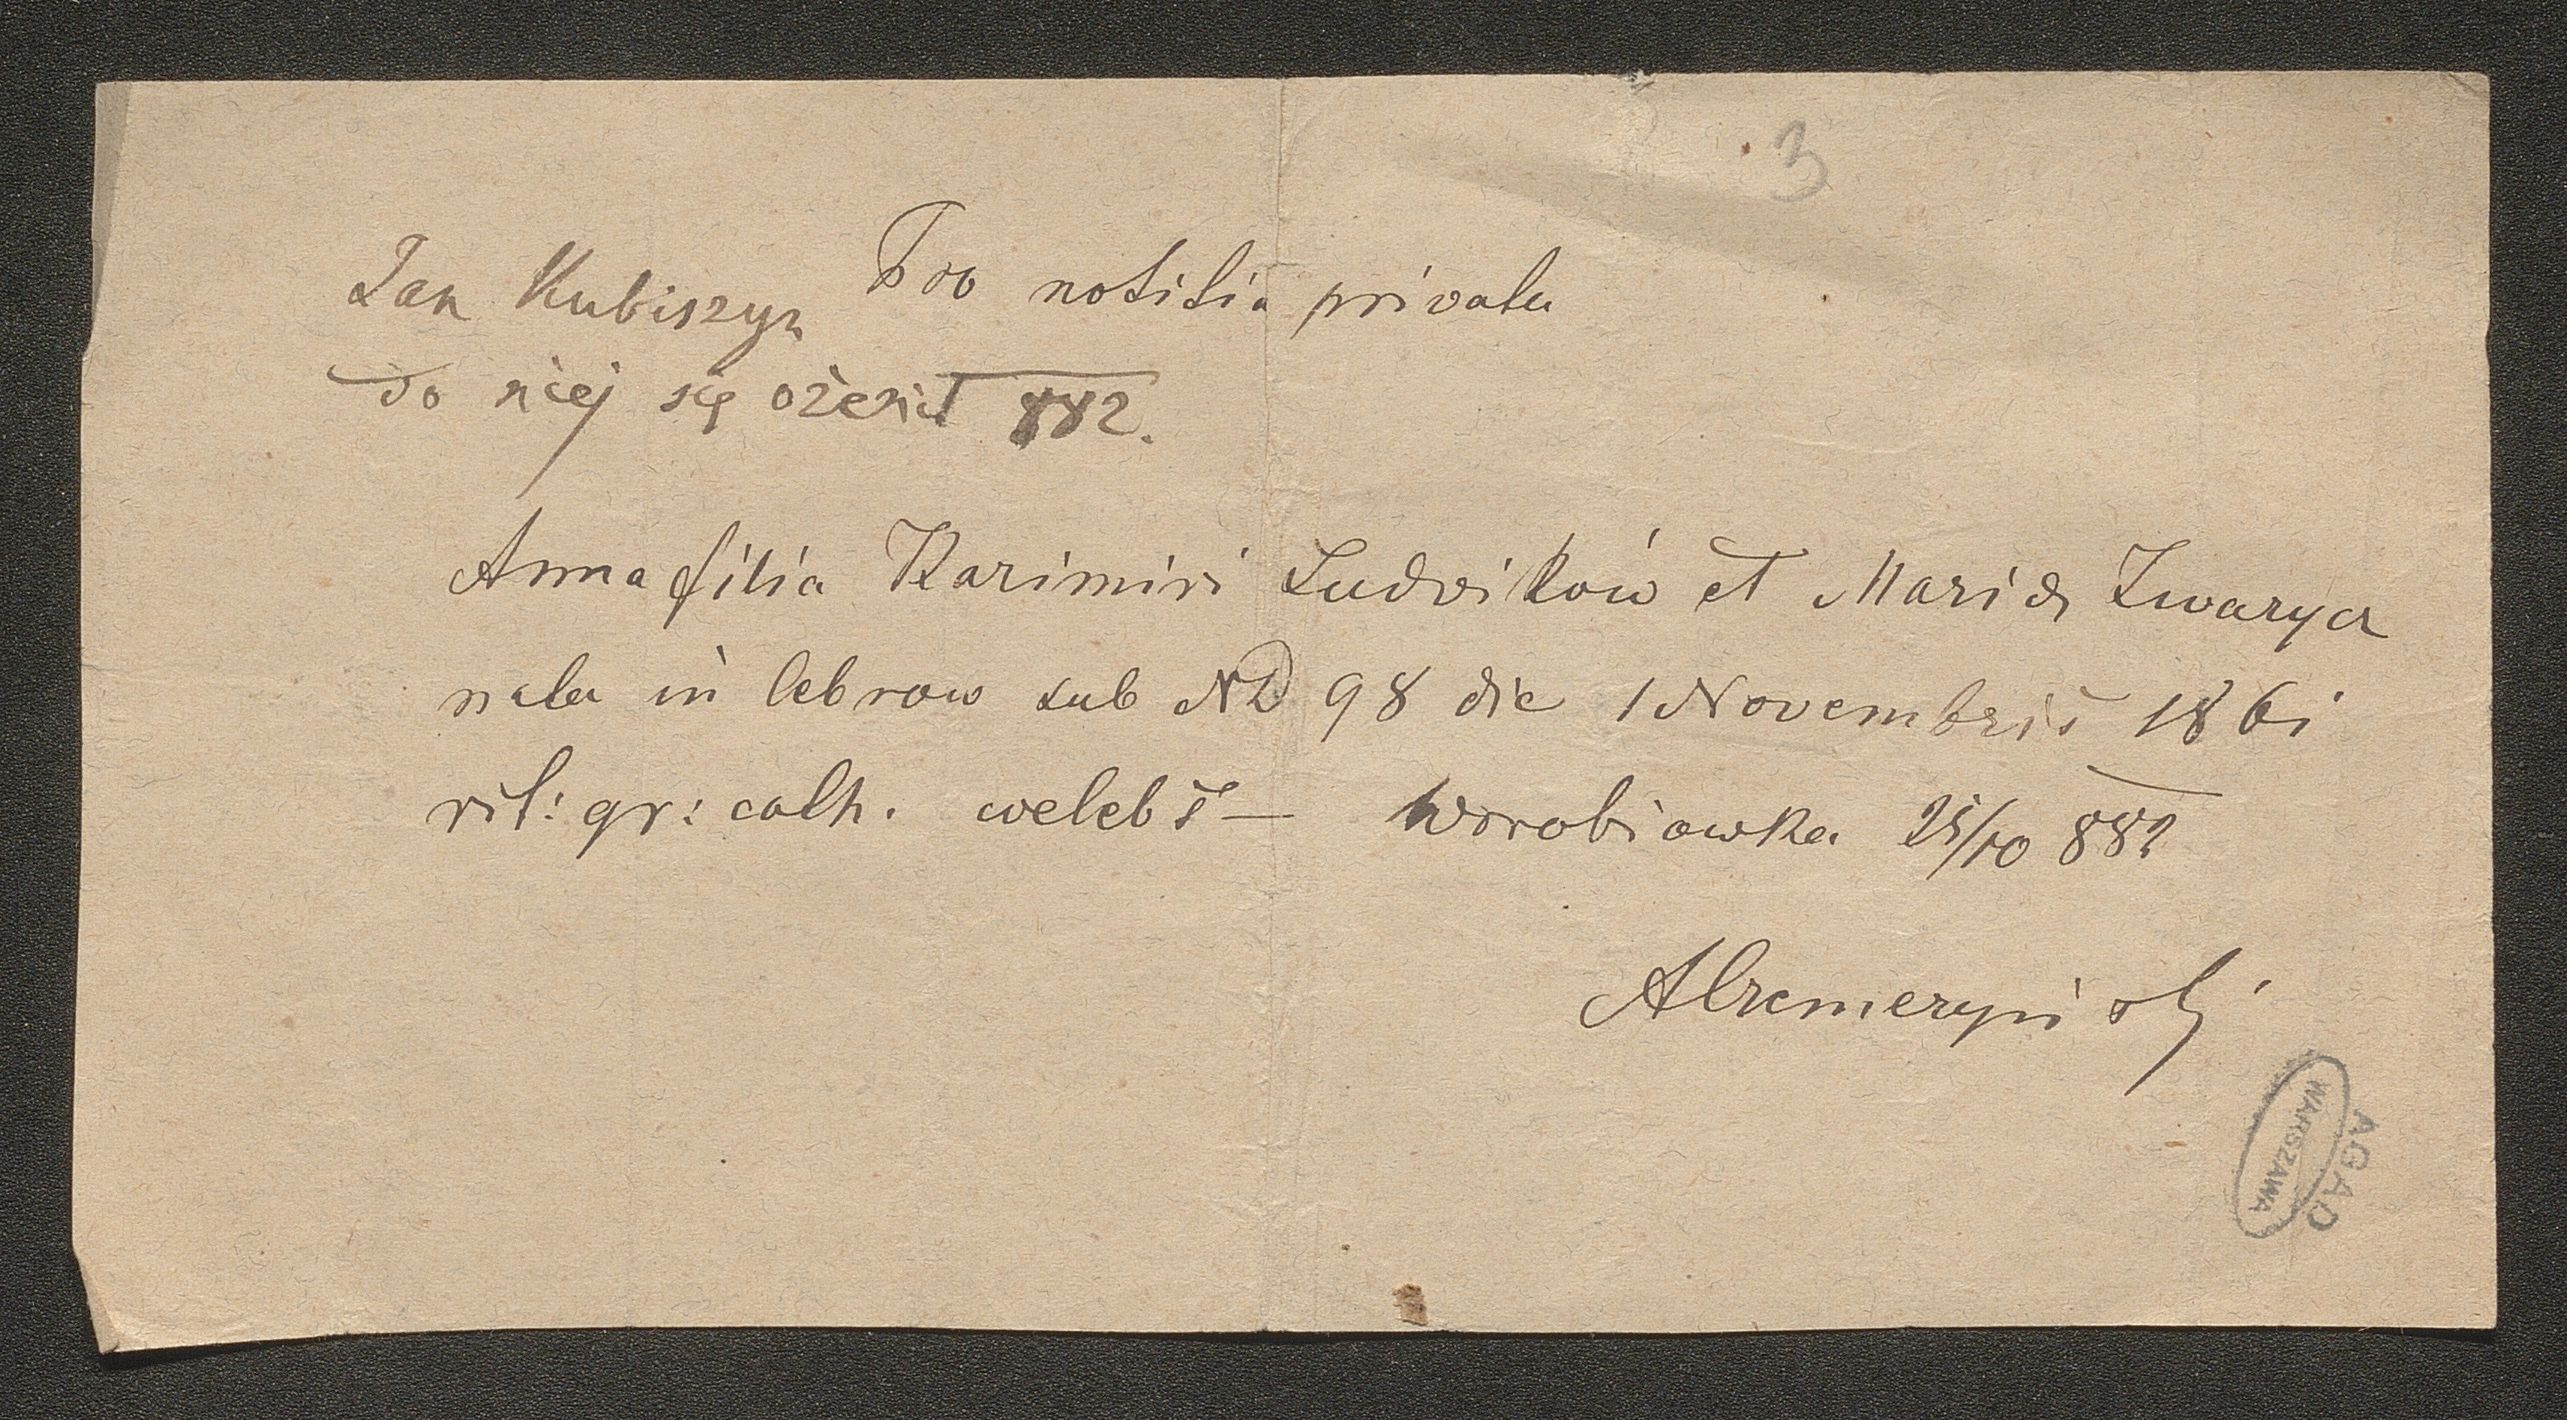 3
Pro notitia privata
Jan Kubiszyn
do niej się ożenił 882.
Anna filia Kazimiri Ludwików et Maria Zwarycz
nata in Cebrow sub ND 98 die 1 Novembris 1861
rit: gr: cath. coelebs — Worobiowka 25/10 882
AGAD
WARSZAWA